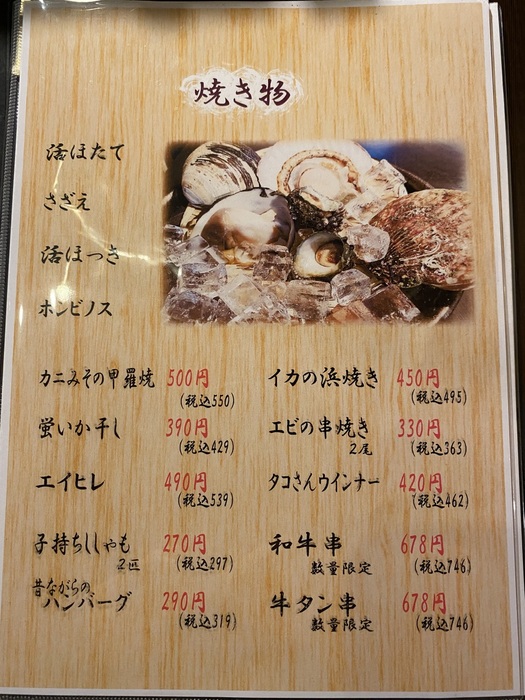 焼き物
活ほたて
さざえ
活ほっき
ホンビノス
カニみその甲羅焼 500円
(税込550)
蛍いか干し 390円
(税込429)
エイヒレ 490円
(税込539)
子持ちししゃも 270円
2匹 (税込297)
昔ながらの
ハンバーグ 290円
(税込319)
イカの浜焼き 450円
(税込495)
エビの串焼き 330円
2尾 (税込363)
タコさんウインナー 420円
(税込462)
和牛串 678円
数量限定 (税込746)
牛タン串 678円
数量限定 (税込746)